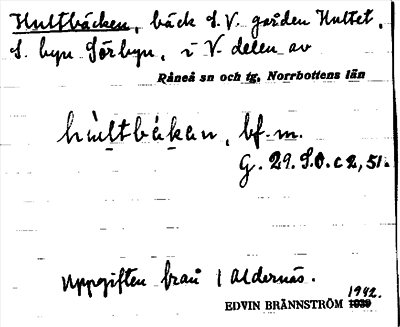 Hultbäcken, bäck S.V. gården Hultet,
S. byn Sörbyn, i V. delen av
Råneå sn och tg, Norrbottens län
bf. m.
G. 29. S.O. c 2, 51.
Uppgiften från Aldernäs.
1942.
EDVIN BRÄNNSTRÖM 1939